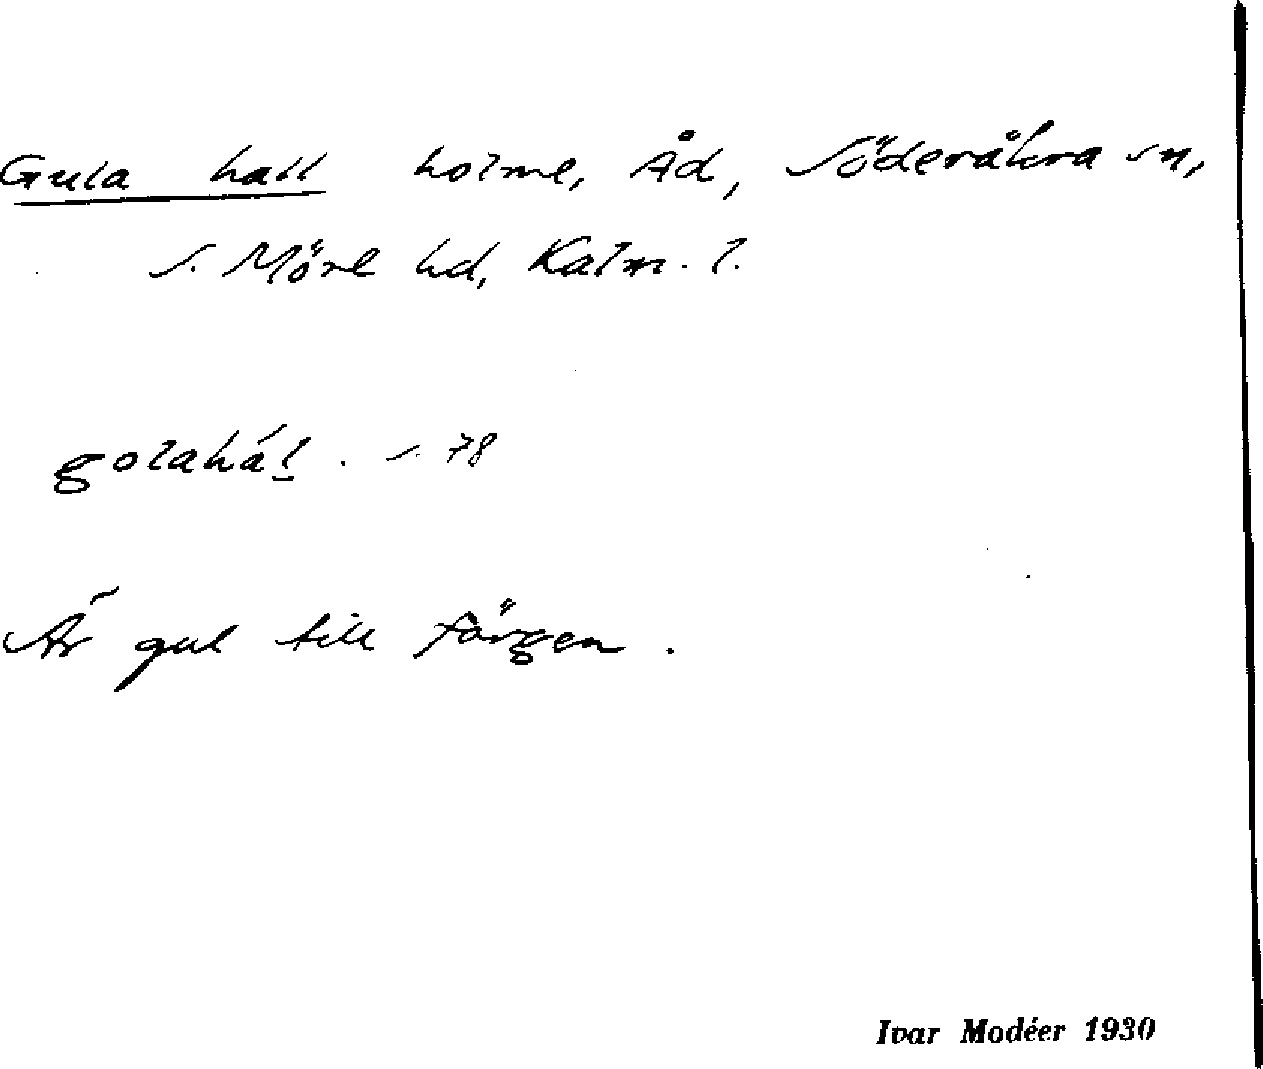 Gula hall holme, Åd, Söderåkra sn,
S. Möre hd, Kalm. l.
golahál. s. 78
Är gul till färgen.
Ivar Modéer 1930